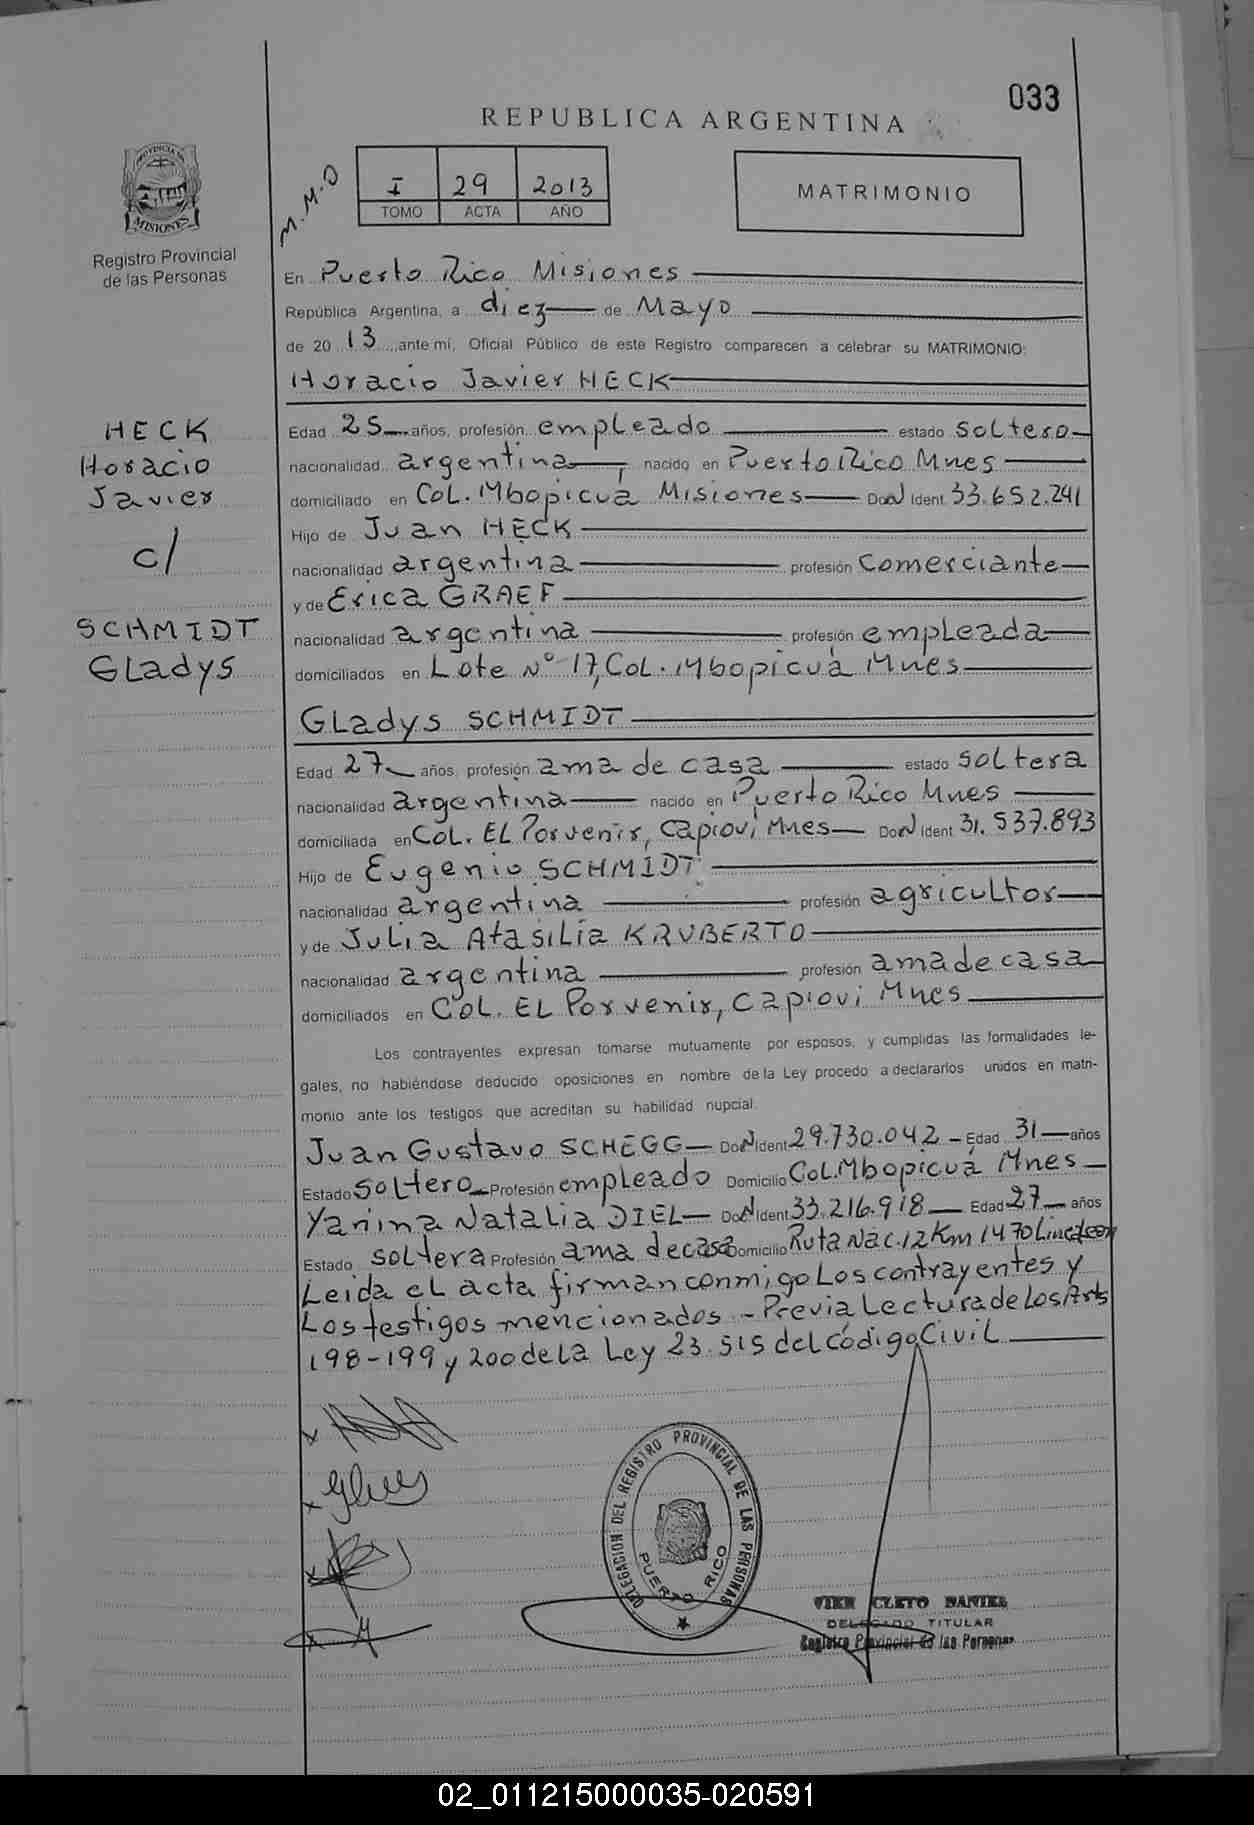 033
REPUBLICA ARGENTINA
M.M.D
I 29 2013
TOMO ACTA AÑO
MATRIMONIO
PROVINCIA DE
MISIONES
Registro Provincial
de las Personas
En Puerto Rico Misiones
República Argentina, a diez de Mayo
de 2013, ante mí, Oficial Público de este Registro comparecen a celebrar su MATRIMONIO:
Horacio Javier HECK
HECK
Horacio
Javier
c/
SCHMIDT
Gladys
Edad 25 años, profesión empleado estado soltero
nacionalidad argentina, nacido en Puerto Rico Mnes
domiciliado en Col. Mbopicuá Misiones DocN Ident. 33.652.241
Hijo de Juan HECK
nacionalidad argentina profesión comerciante
y de Erica GRAEF
nacionalidad argentina profesión empleada
domiciliados en Lote Nº 17, Col. Mbopicuá Mnes
Gladys SCHMIDT
Edad 27 años, profesión ama de casa estado soltera
nacionalidad argentina nacido en Puerto Rico Mnes
domiciliada en Col. El Porvenir, Capioví Mnes DocN Ident. 31.537.893
Hijo de Eugenio SCHMIDT
nacionalidad argentina profesión agricultor
y de Julia Atasilia KRUBERTO
nacionalidad argentina profesión ama de casa
domiciliados en Col. El Porvenir, Capiovi Mnes
Los contrayentes expresan tomarse mutuamente por esposos, y cumplidas las formalidades le-
gales, no habiéndose deducido oposiciones en nombre de la Ley procedo a declararlos unidos en matri-
monio ante los testigos que acreditan su habilidad nupcial.
Juan Gustavo SCHEGG DocN Ident. 29.730.042 - Edad 31 años
Estado soltero Profesión empleado Domicilio Col. Mbopicuá Mnes
Yanina Natalia DIEL DocN Ident. 33.216.918 Edad 27 años
Estado soltera Profesión ama de casa Domicilio Ruta Nac. 12 Km 1470
Leida el acta firman conmigo los contrayentes y
los testigos mencionados - Previa Lectura de los Arts
198-199 y 200 de la Ley 23.515 del código Civil
DELEGACION DEL REGISTRO PROVINCIAL DE LAS PERSONAS
PUERTO RICO
CLETO DANIEL
DELEGADO TITULAR
Registro Provincial de las Personas
02_011215000035-020591